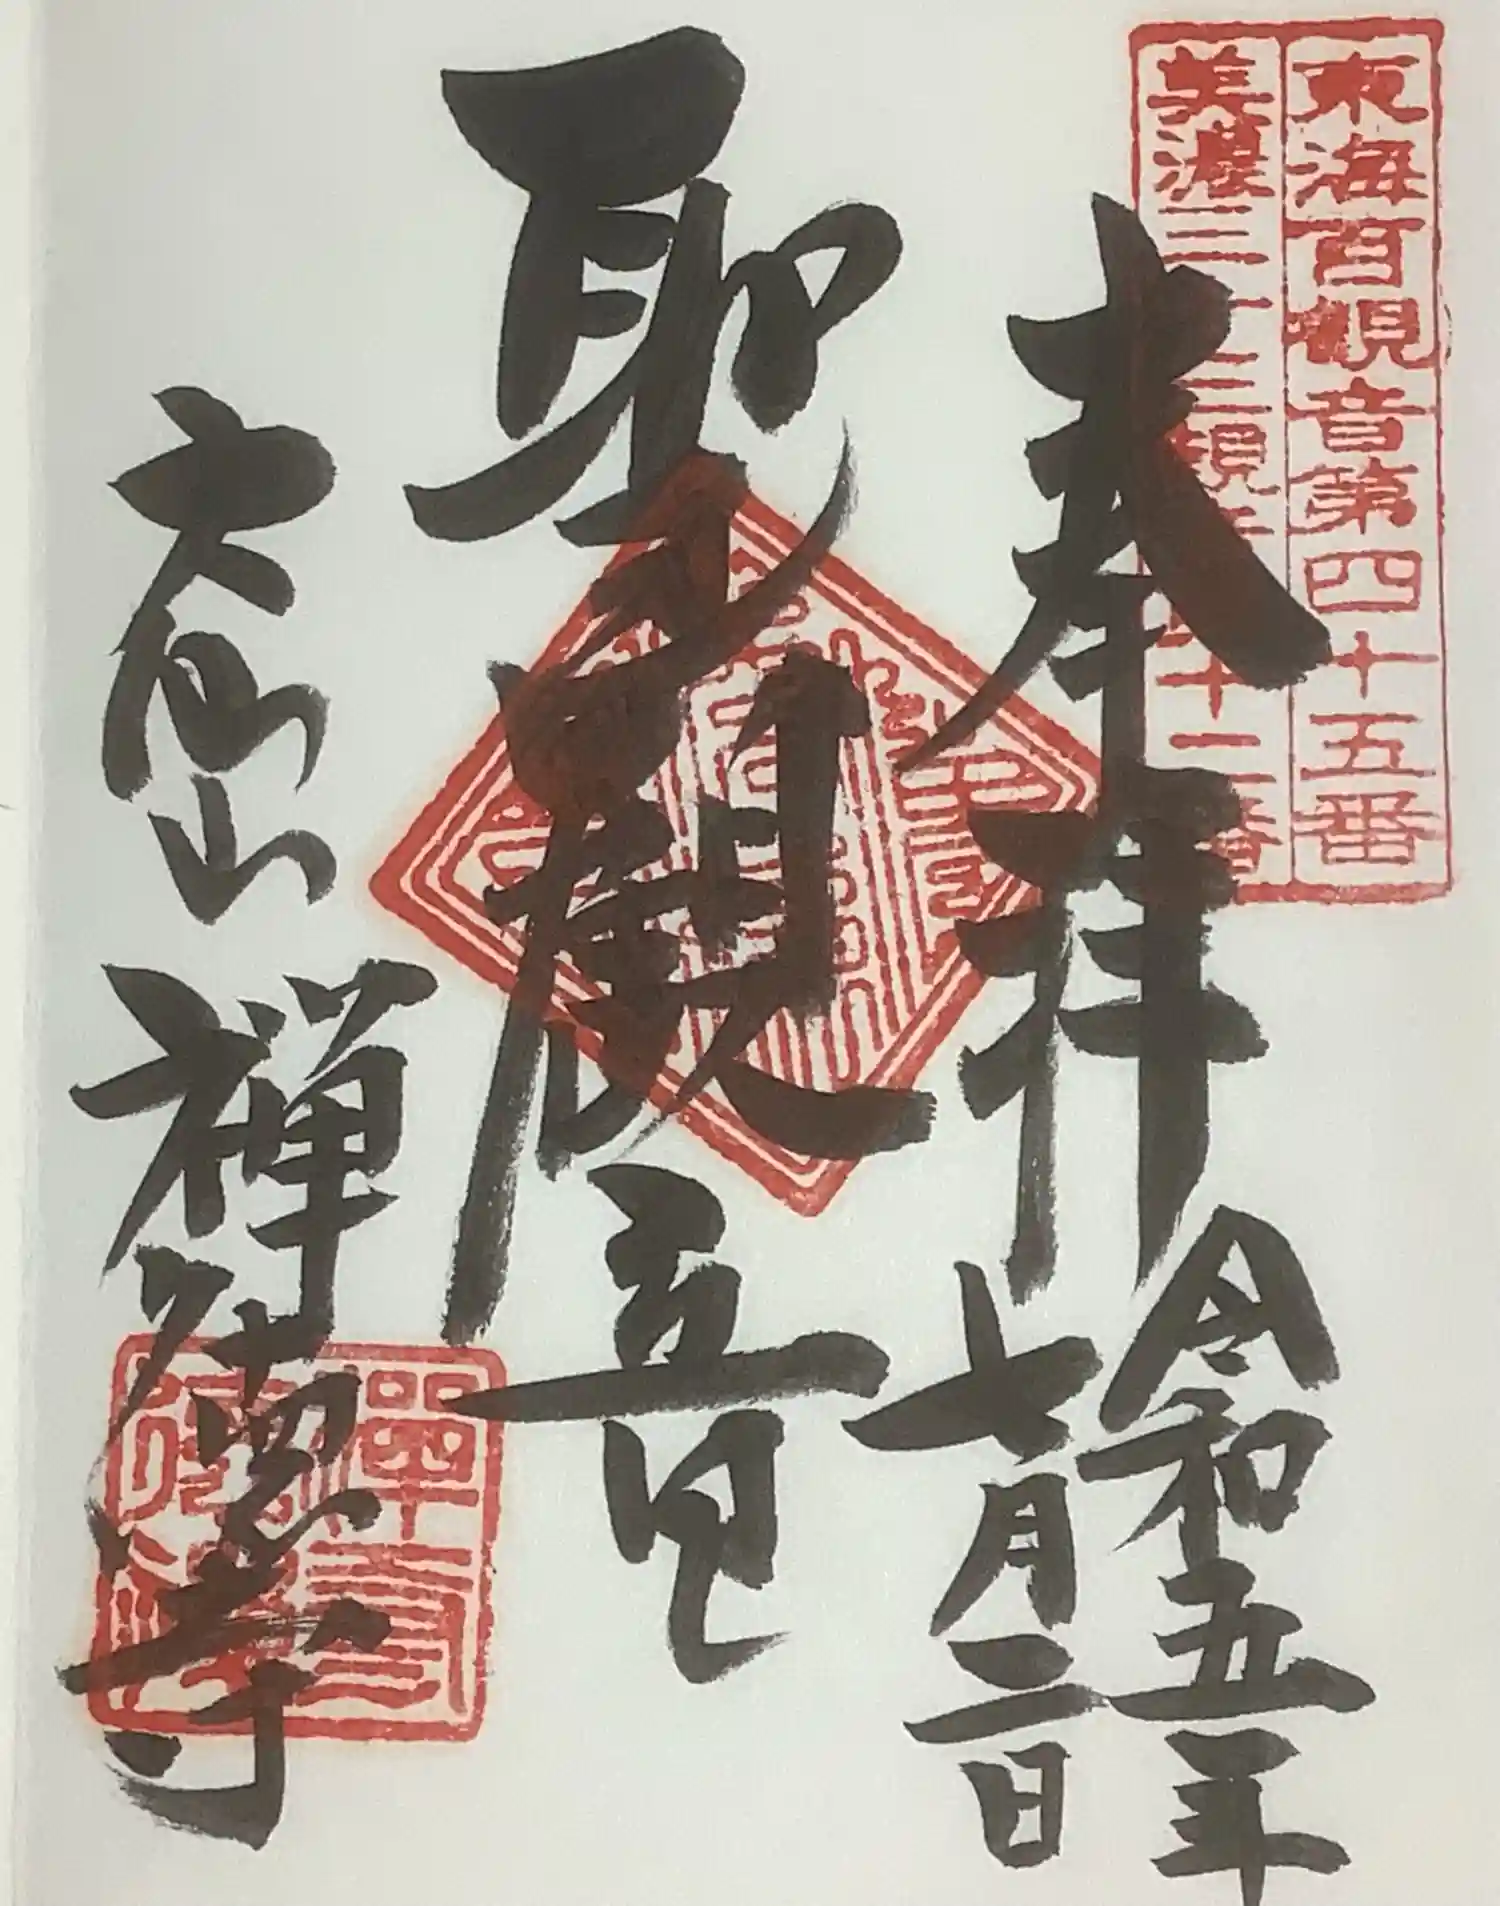 東海百観音第四十五番
美濃三十三観音 十二番
奉拝
令和五年
七月二日
聖観音
大仙山
禅徳寺